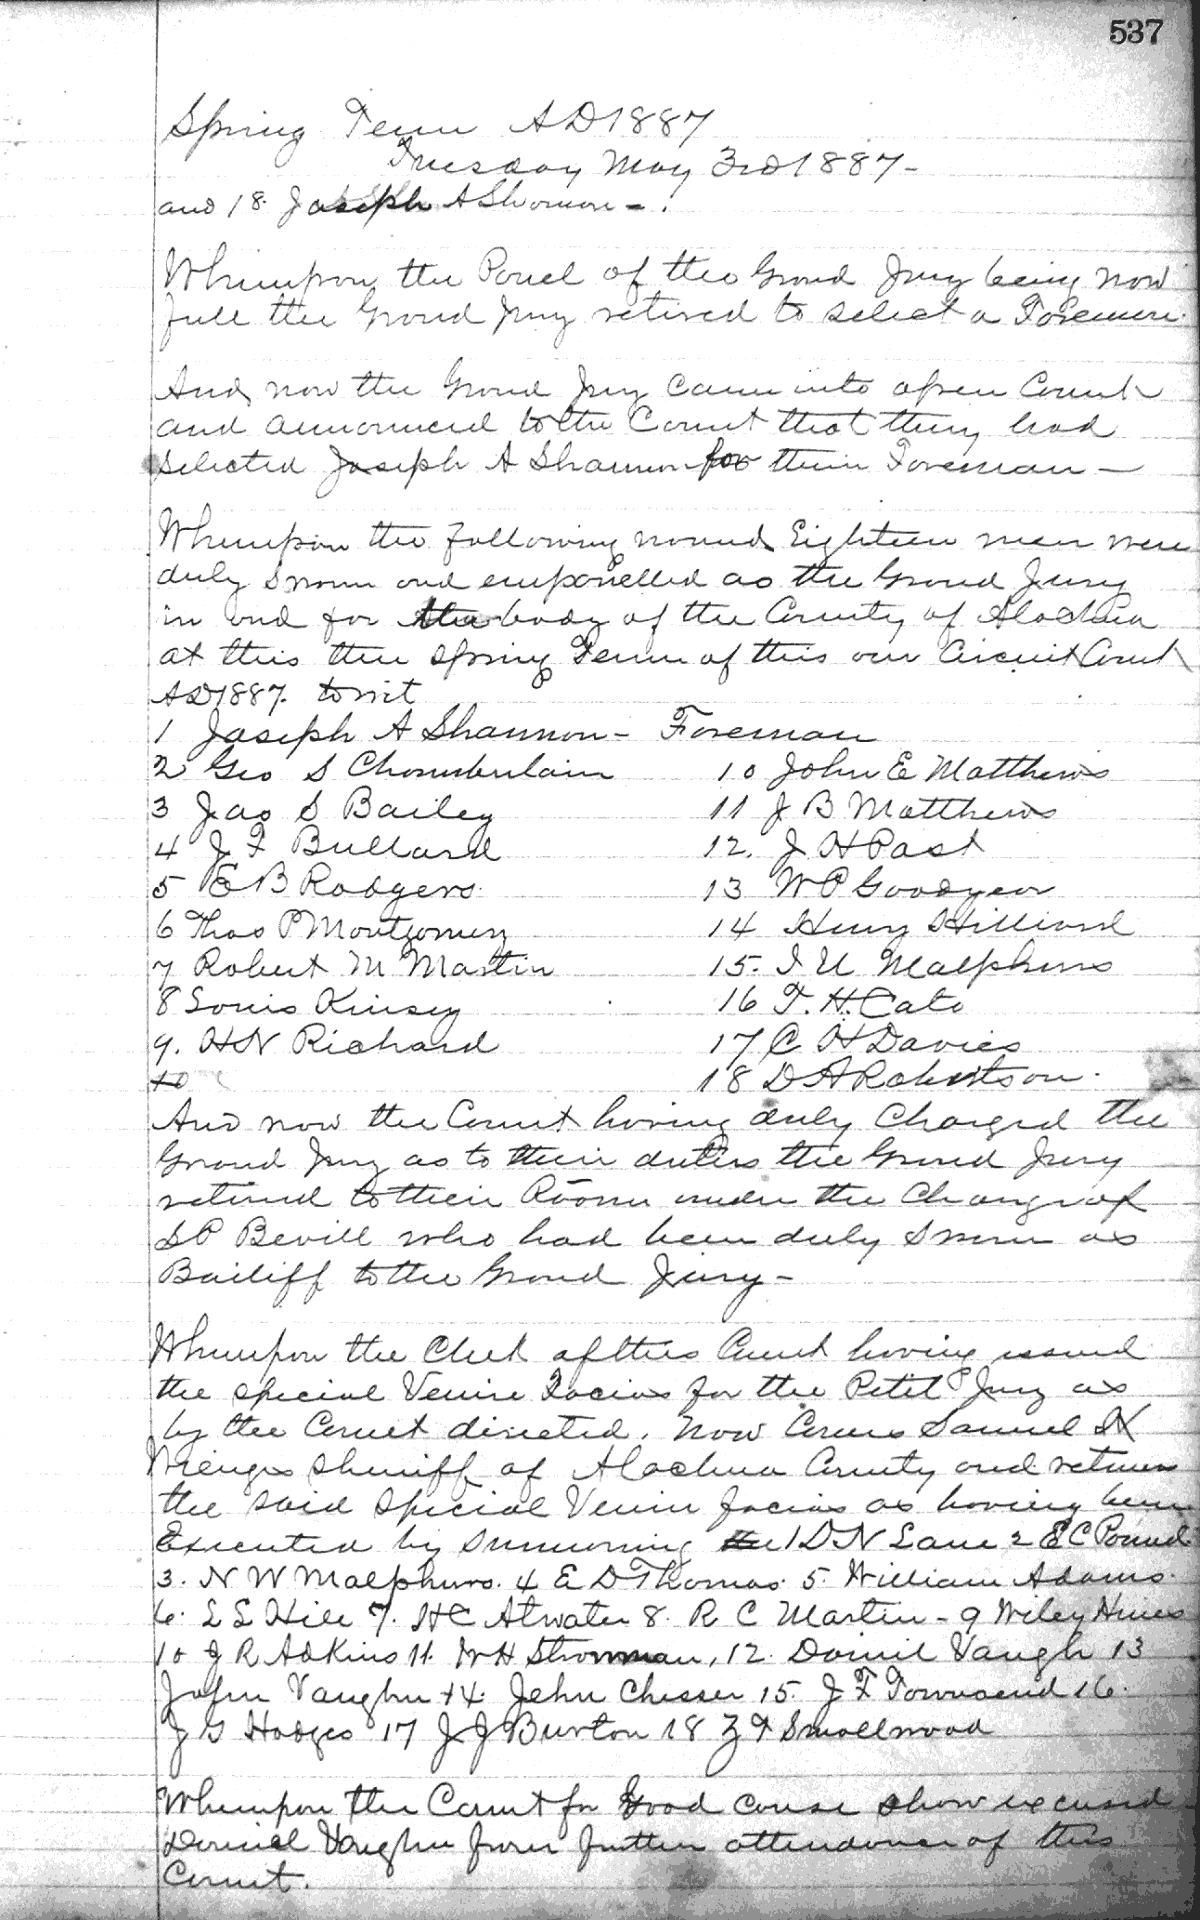 537
Spring Term AD 1887
Tuesday May 3rd 1887-
and 18. Joseph A Shannon -.
Whereupon the Panel of the Grand Jury being now
full the Grand Jury retired to select a Foreman.
And now the Grand Jury came into open Court
and announced to the Court that they had
selected Joseph A Shannon for their Foreman —
Whereupon the following named Eighteen men were
duly sworn and empanelled as the Grand Jury
in and for the body of the County of Alachua
at this the Spring Term of this our Circuit Court
AD 1887. towit
1 Joseph A Shannon - Foreman
2 Geo S Chamberlain
3 Jas S Bailey
4 J F Bullard
5 E B Rodgers.
6 Thos P Montgomery
7 Robert M Martin
8 Louis Kinsey
9. H N Richard
10
10 John E Matthews
11 J B Matthews
12. J H Post
13 W P Goodyear
14 Henry Hilliard
15. I U Malphurs
16 T. H. Cato
17 C H Davies
18 D A Robertson.
And now the Court having duly Charged the
Grand Jury as to their duties the Grand Jury
retired to their Room under the Charge of
S P Bevill who had been duly sworn as
Bailiff to the Grand Jury -
Whereupon the Clerk of this Court having issued
the special Venire Facias for the Petit Jury as
by the Court directed. Now Comes Samuel
Wienges Sheriff of Alachua County and returns
the said special Venire facias as having been
Executed by summoning the 1 D N Lane 2 E C Pound
3. N W Malphurs. 4 E D Thomas. 5. William Adams.
6. L L Hill 7. H C Atwater 8. R C Martin - 9 Wiley Hines
10 J R Adkins 11. W H Stronman, 12. Daniel Vaugh 13
John Vaughn 14. John Chesser 15. J F Townsend 16.
J G Hodges 17 J J Burton 18 Z T Smallwood
Whereupon the Court for Good cause show excused
Daniel Vaughn from further attendance of this
Court.